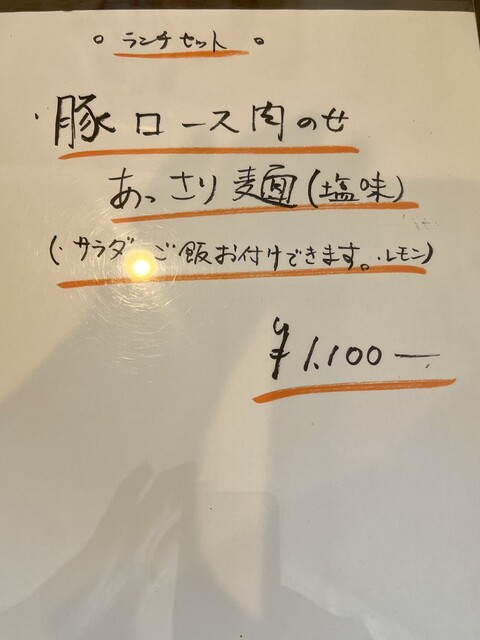 ○ ランチセット ○
・豚ロース肉のせ
あっさり麺(塩味)
(・サラダ・ご飯お付けできます。・レモン)
¥1,100―